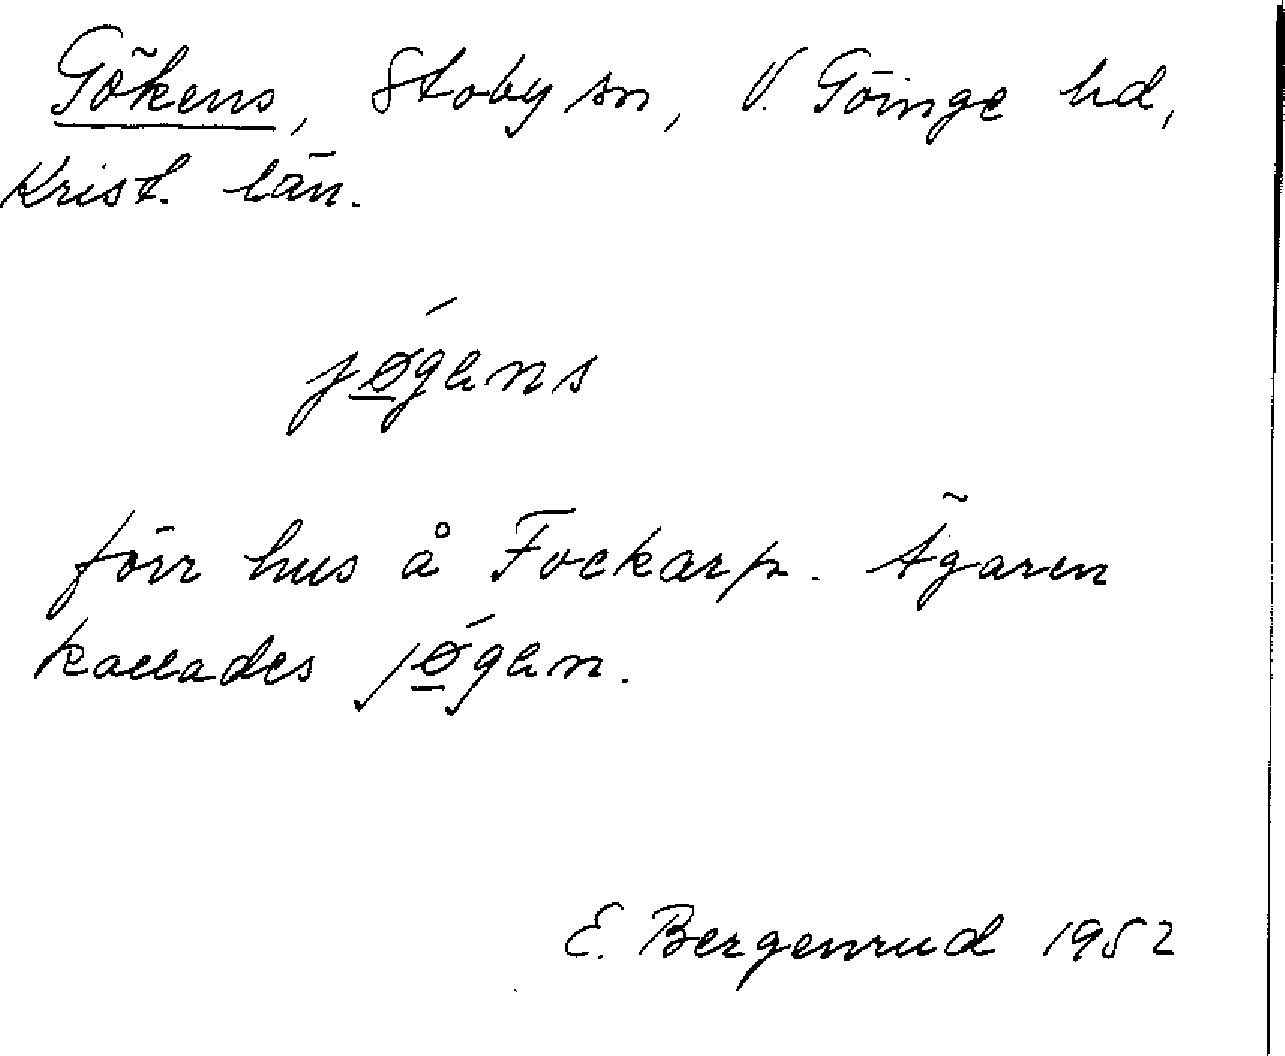 Gökens, Stoby sn, V. Göinge hd,
Krist. län.
jǿ̲gens
förr hus å Fockarp. Ägaren
kallades jǿ̲gen.
E. Bergenrud 1952